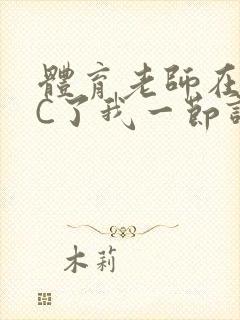 體育老師在
C了我一節
木莉